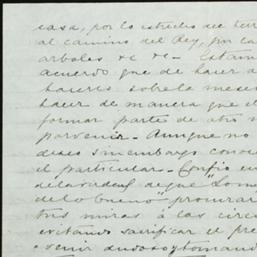 casa, por lo estrecho del
al camino del Rey, por la
arboles &c &c - Estam
acuerdo que de hacer a
hacerse sobre la mesa
hacer de manera que e
formar parte de otro
porvenir. - Aunque no
deseo sin embargo conoc
el particular. - Confio en
de la verdad de que "Lo m
de lo bueno procurar
tus miras á las circ
evitando sacrificar el pre
venir dudoso y tomand